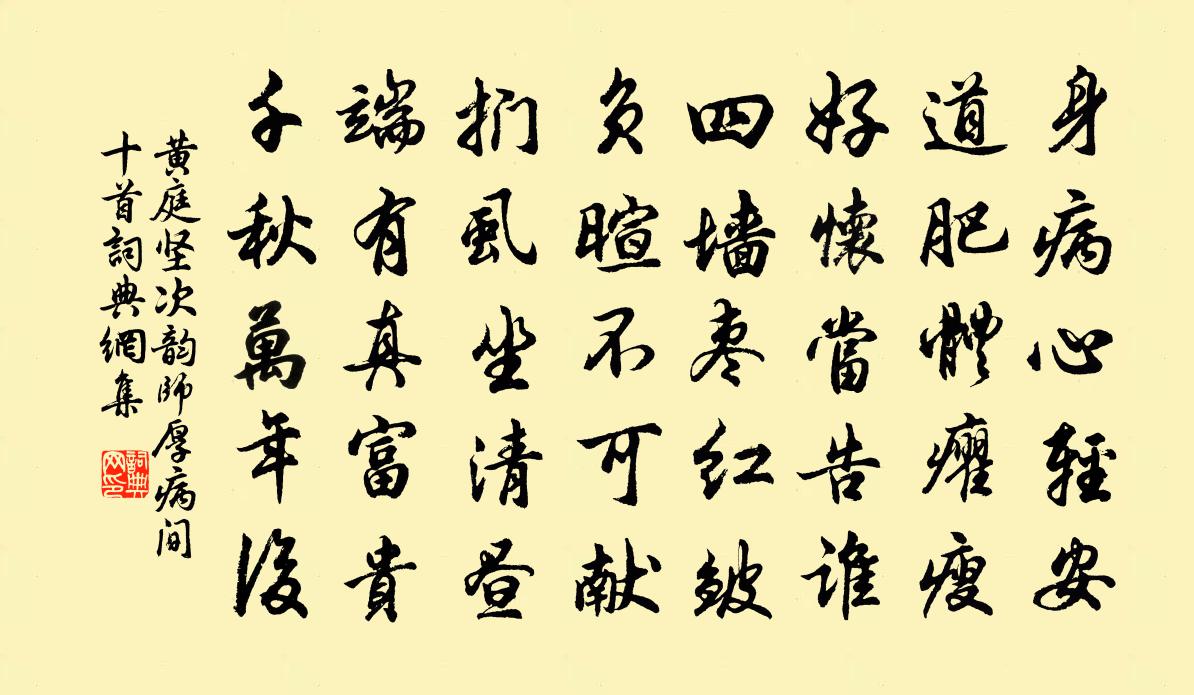 身病心輕安
道肥體癯瘦
好懷當告誰
四墙枣紅皴
负暄不可献
捫虱坐清昼
端有真富貴
千秋萬年後
黄庭坚次韵師厚病间
十首詞典網集
詞典
网印